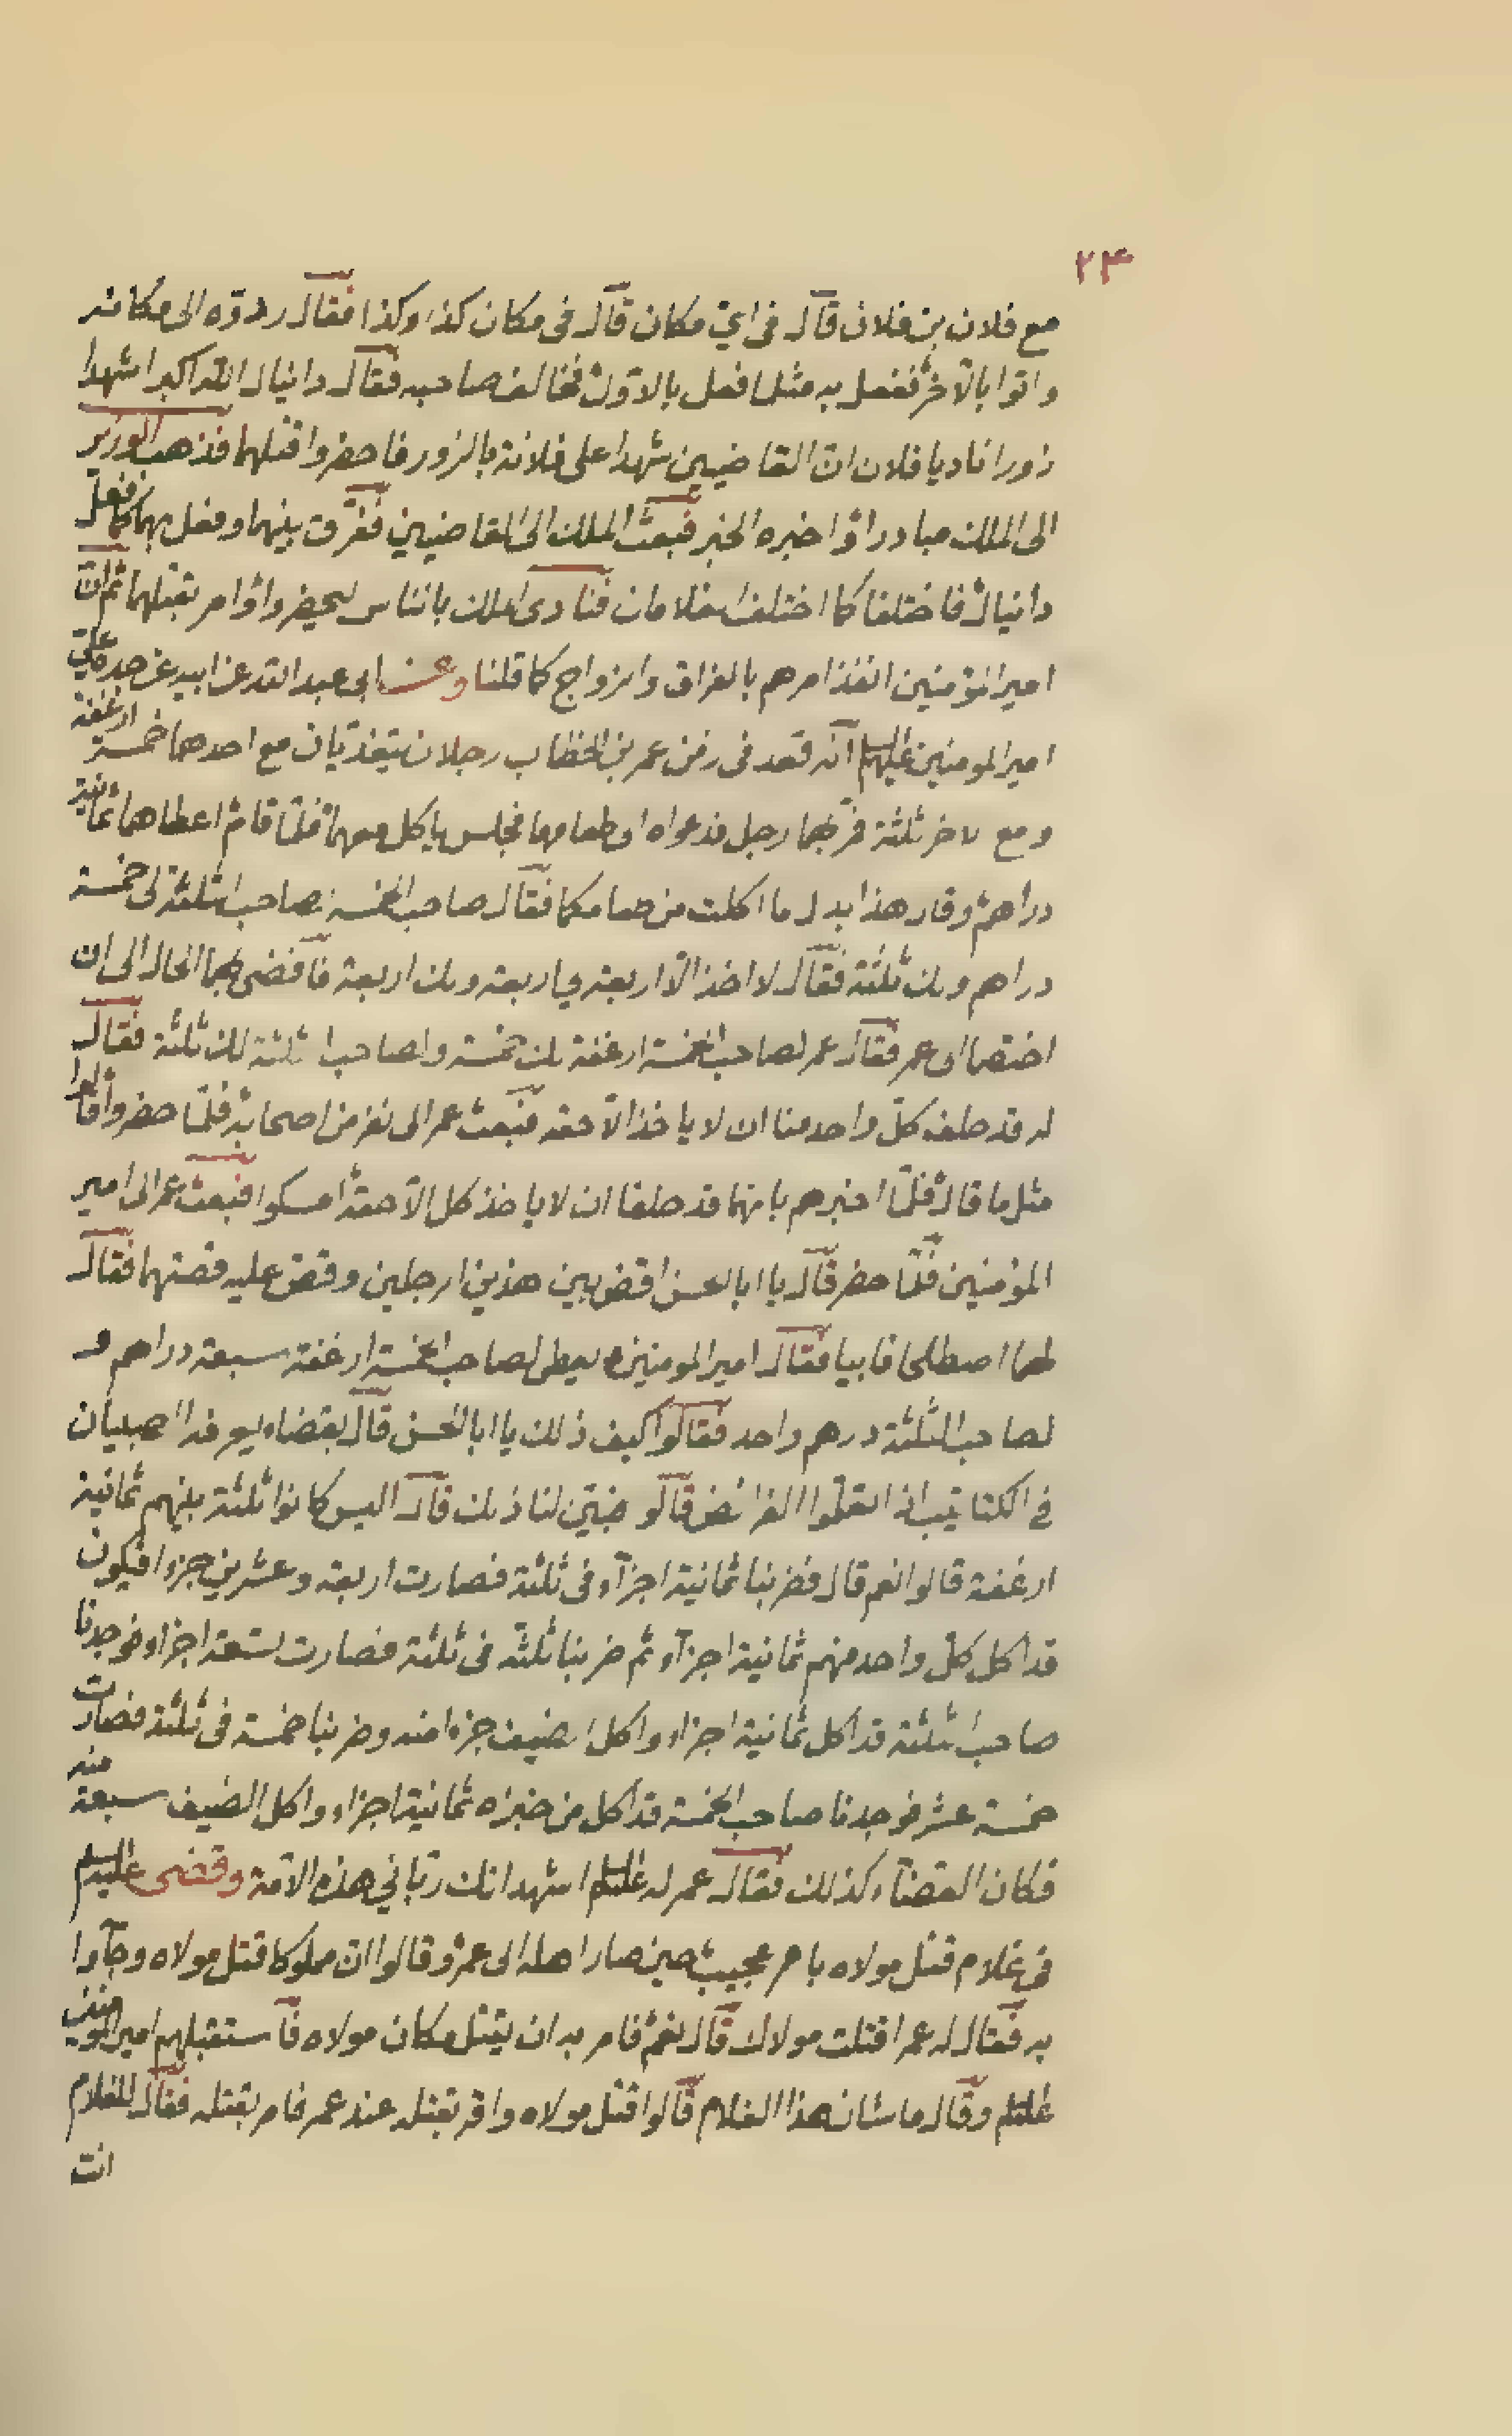 ٢٣
مع فلان بن فلان قال فى اىّ مكان قال فى مكان كذا وكذا فقال ردوّه الى مكانه
واتوا بالآخر ففعل به مثل ما فعل بالاوّل فخالف صاحبه فقال دانيال الله اكبر شهدا
زورا ناد يا فلان انّ القاضيين شهدا على فلانة بالزور فاحضروا قتلهما فذهب الوزير
الى الملك مبادرا واخبره الخبر فبعث الملك الى القاضيين ففرّق بينهما وفعل بهما كما فعل
دانيال فاختلفا كما اختلف الغلامان فنادى الملك بالناس ليحضروا وامر بقتلهما ثم انّ
امير المؤمنين انفذ امرهم بالفراق والزواج كما قلنا وعن ابى عبد الله عن ابيه عن جده على
امير المومنين عليهم السلم انّه قعد فى زمن عمر بن الخطاب رجلان يتغدّيان مع احدهما خمسة ارغفة
ومع الاخر ثلثة فمرّ بهما رجل فدعواه الى طعامهما فجلس ياكل معهما فلمّا قام اعطاهما ثمانية
دراهم وقال هذا بدل ما اكلت من طعامكما فقال صاحب الخمسة لصاحب الثلثة لى خمسة
دراهم ولك ثلثة فقال لا اخذ الّا اربعة لى اربعة ولك اربعة فافضى بهما الحال الى ان
اختصما الى عمر فقال عمر لصاحب الخمسة ارغفة لك خمسة ولصاحب الثلثة لك ثلثة فقال
له قد حلف كلّ واحد منا ان لا ياخذ الّا حقه فبعث عمر الى نفر من اصحابه فلمّا حضروا قالوا
مثل ما قال فلمّا اخبرهم بانهما قد حلفا ان لا ياخذ كل الّا حقه امسكوا فبعث عمر الى امير
المؤمنين فلمّا حضر قال يا ابا الحسن اقض بين هذين الرجلين وقصّ عليه قصتهما فقال
لهما اصطلحا فابيا فقال امير المومنين يعطى لصاحب الخمسة ارغفة سبعة دراهم و
لصاحب الثلثة درهم واحد فقالوا كيف ذلك يا ابا الحسن قال بقضاء يعرفه الصبيان
فى الكتاتيب اذا تعلّموا الفرائض قالوا بيّن لنا ذلك قال اليس كانوا ثلثة بينهم ثمانية
ارغفة قالوا نعم قال فضربنا ثمانية اجزآء فى ثلثة فصارت اربعة وعشرين جزءا فيكون
قد اكل كلّ واحد منهم ثمانية اجزآء ثم ضربنا ثلثة فى ثلثة فصارت تسعة اجزاء فوجدنا
صاحب الثلثة قد اكل ثمانية اجزاء واكل الضيف جزءا منه وضربنا خمسة فى ثلثة فصارت
خمسة عشر فوجدنا صاحب الخمسة قد اكل من خبزه ثمانية اجزاء واكل الضيف سبعة منه
فكان القضآء كذلك فقال عمر له عليه السلم اشهد انك ربّانى هذه الامة وقضى عليه السلم
فى غلام قتل مولاه بامر عجيب حين صار اهله الى عمر وقالوا ان مملوكا قتل مولاه وجآوا
به فقال له عمر اقتلت مولاك قال نعم فامر به ان يقتل مكان مولاه فاستقبلهم امير المومنين
عليه السلم وقال ما شان هذا الغلام قالوا قتل مولاه واقر بقتله عند عمر فامر بقتله فقال للغلام
انت